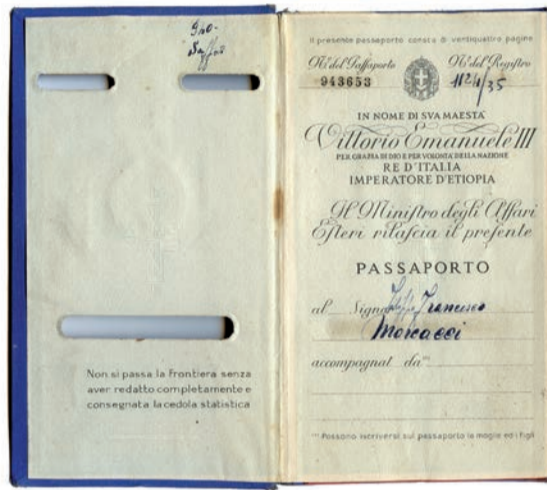 Non si passa la Frontiera senza
aver redatto completamente e
consegnata la cedola statistica
Il presente passaporto consta di ventiquattro pagine
N.º del Passaporto
N.º del Registro
943653
IN NOME DI SVA MAESTÀ
Vittorio Emanuele III
PER GRAZIA DI DIO E PER VOLONTÀ DELLA NAZIONE
RE D'ITALIA
IMPERATORE D'ETIOPIA
Il Ministro degli Affari
Esteri rilascia il presente
PASSAPORTO
al Signor Francesco
accompagnat da
Possono iscriversi sul passaporto la moglie ed i figli